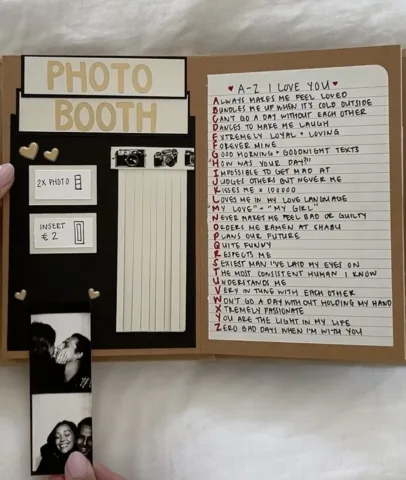 PHOTO
BOOTH
2X PHOTO
INSERT
€ 2
♥ A-Z I LOVE YOU ♥
ALWAYS MAKES ME FEEL LOVED
BUNDLES ME UP WHEN IT'S COLD OUTSIDE
CAN'T GO A DAY WITHOUT EACH OTHER
DANCES TO MAKE ME LAUGH
EXTREMELY LOYAL + LOVING
FOREVER MINE
GOOD MORNING + GOODNIGHT TEXTS
"HOW WAS YOUR DAY?"
IMPOSSIBLE TO GET MAD AT
JUDGES OTHERS BUT NEVER ME
KISSES ME X 100000
LOVES ME IN MY LOVE LANGUAGE
"MY LOVE" + "MY GIRL"
NEVER MAKES ME FEEL BAD OR GUILTY
ORDERS ME RAMEN AT SHABU
PLANS OUR FUTURE
QUITE FUNNY
RESPECTS ME
SEXIEST MAN I'VE LAID MY EYES ON
THE MOST CONSISTENT HUMAN I KNOW
UNDERSTANDS ME
VERY IN TUNE WITH EACH OTHER
WON'T GO A DAY WITHOUT HOLDING MY HAND
XTREMELY PASSIONATE
YOU ARE THE LIGHT IN MY LIFE
ZERO BAD DAYS WHEN I'M WITH YOU